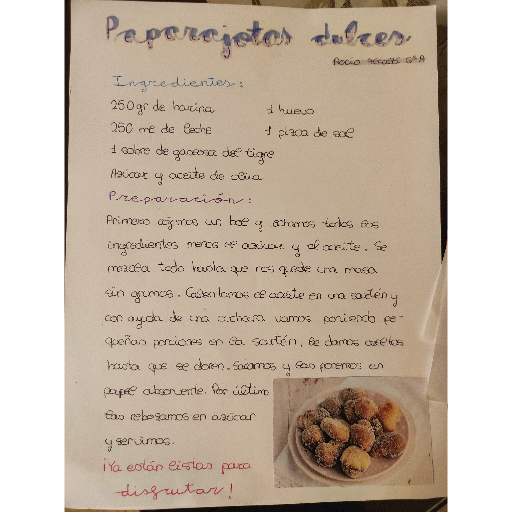 Paparajotas dulces
Rocío 5ºA
Ingredientes:
250gr de harina 1 huevo
250 ml de leche 1 pizca de sal
1 sobre de gaseosa del tigre
Azúcar y aceite de oliva
Preparación:
Primero cojemos un bol y echamos todos los
ingredientes menos el azúcar y el aceite. Se
mezcla todo hasta que nos quede una masa
sin grumos. Calentamos el aceite en una sartén y
con ayuda de una cuchara vamos poniendo pe-
queñas porciones en la sartén. Le damos vueltas
hasta que se doren. Sacamos y las ponemos en
papel absorvente. Por último
las rebozamos en azúcar
y servimos.
¡Ya están listas para
disfrutar!